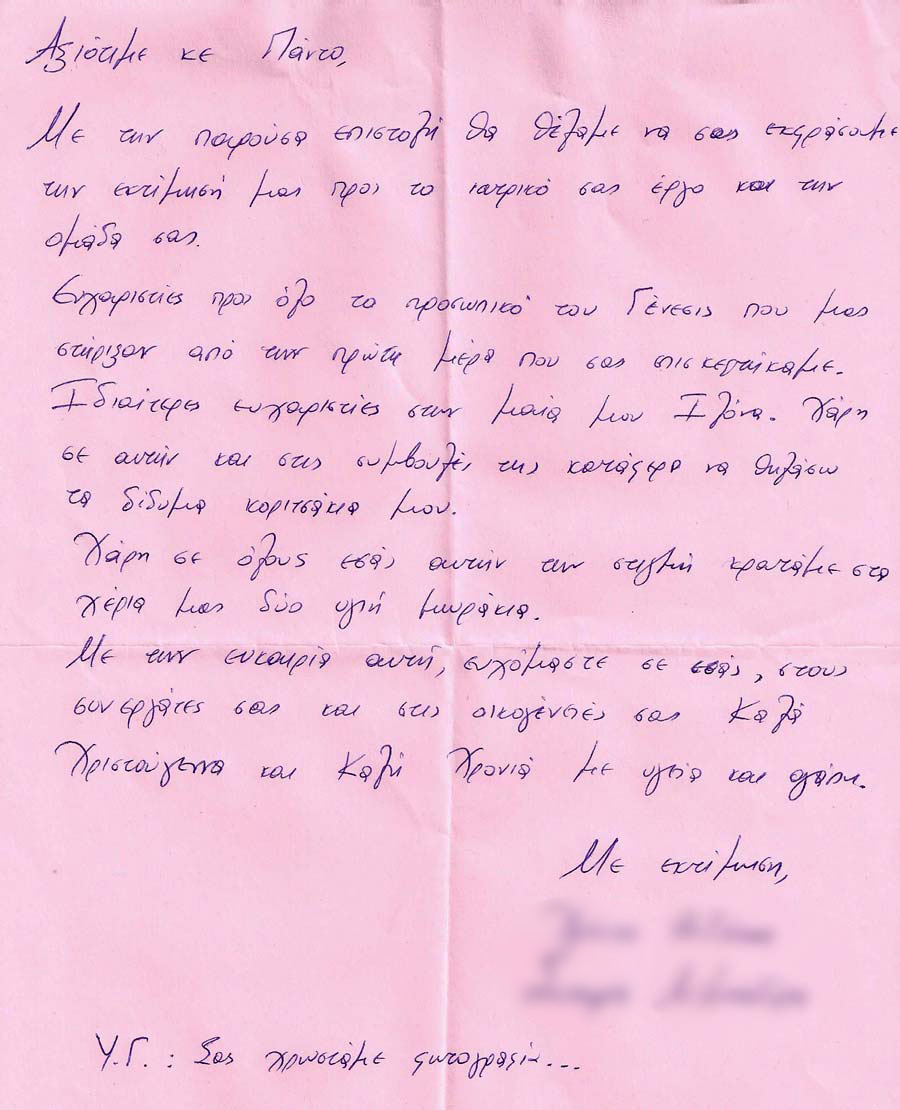 Αξιότιμε κε Πάντο,
Με την παρούσα επιστολή θα θέλαμε να σας εκφράσουμε
την εκτίμησή μας προς το ιατρικό σας έργο και την
ομάδα σας.
Ευχαριστίες προς όλο το προσωπικό του Γένεσις που μας
στήριξαν από την πρώτη μέρα που σας επισκεφτήκαμε.
Ιδιαίτερες ευχαριστίες στην μαία μου Ιλόνα. Χάρη
σε αυτήν και στις συμβουλές της κατάφερα να θηλάσω
τα δίδυμα κοριτσάκια μου.
Χάρη σε όλους εσάς αυτήν την στιγμή κρατάμε στα
χέρια μας δύο υγιή μωράκια.
Με την ευκαιρία αυτή, ευχόμαστε σε εσάς, στους
συνεργάτες σας και στις οικογένειές σας Καλά
Χριστούγεννα και Καλή Χρονιά με υγεία και αγάπη.
Με εκτίμηση,
Υ.Γ.: Σας χρωστάμε φωτογραφία...